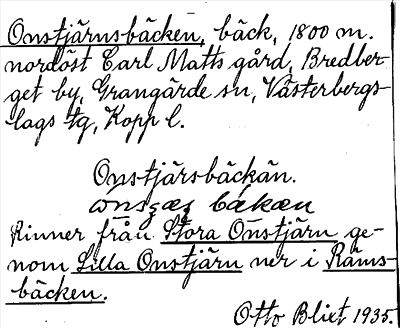 Onstjärnsbäcken, bäck, 1800 m.
nordöst Carl Matts gård, Bredber-
get by, Grangärde sn, Västerbergs-
lags tg, Kopp l.
Onstjärsbäckän.
Rinner från Stora Onstjärn ge-
nom Lilla Onstjärn ner i Räms-
bäcken.
Otto Blixt 1935.